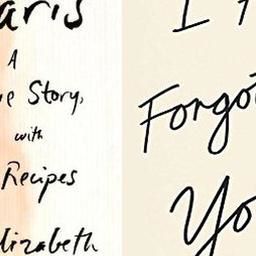 aris
A
ve Story,
with
Recipes
lizabeth
I
Forgo
Yo